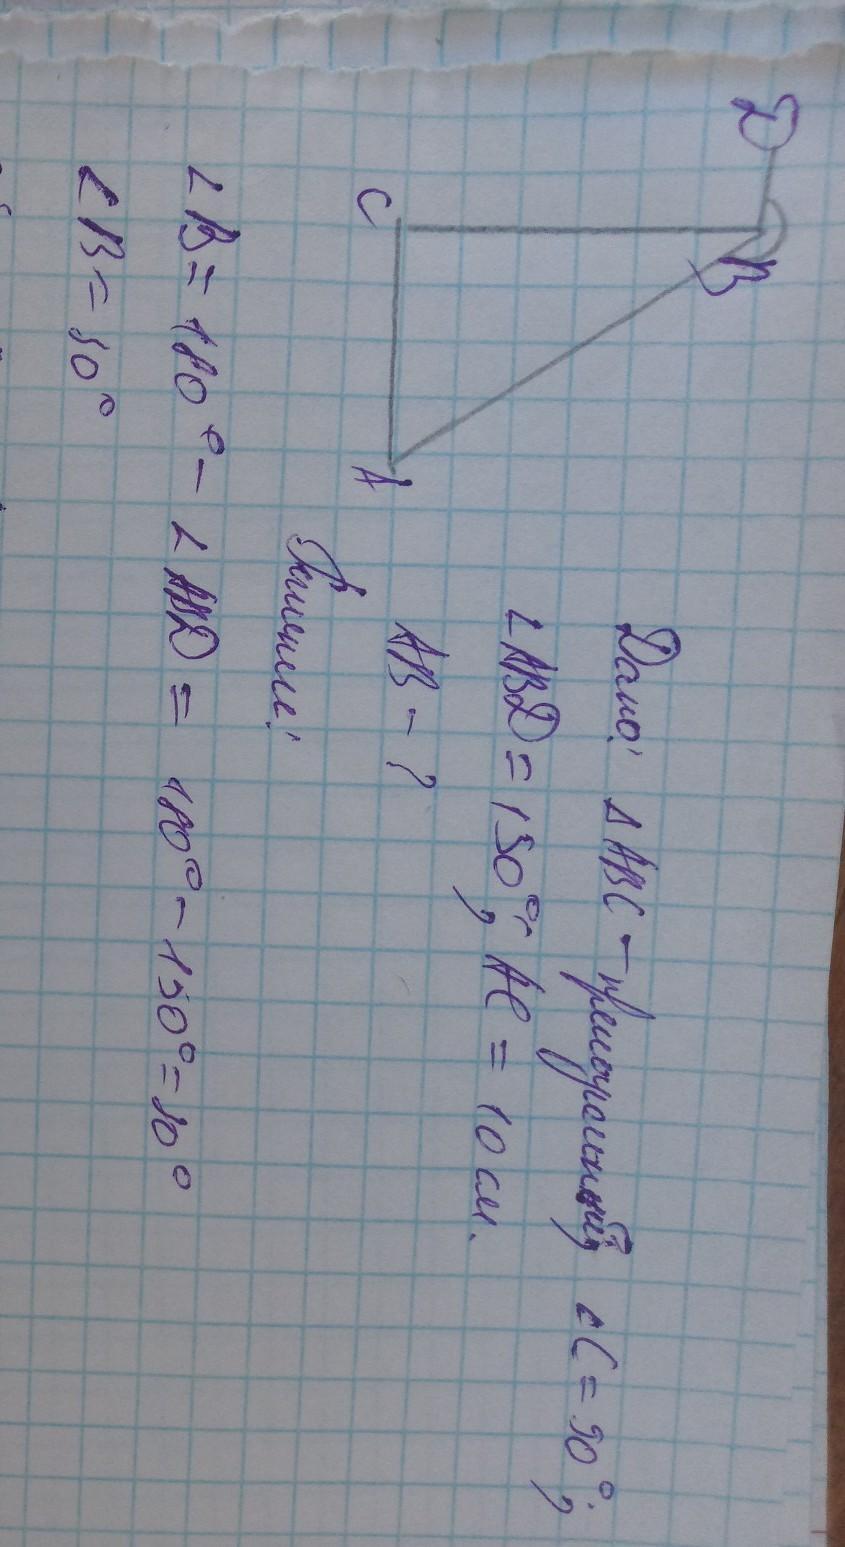 D
B
C
A
Дано: Δ ABC – прямоугольный, ∠C = 90°;
∠ABD = 150°; AC = 10 см.
AB – ?
Решение:
∠B = 180° – ∠ABD = 180° – 150° = 30°
∠B = 30°